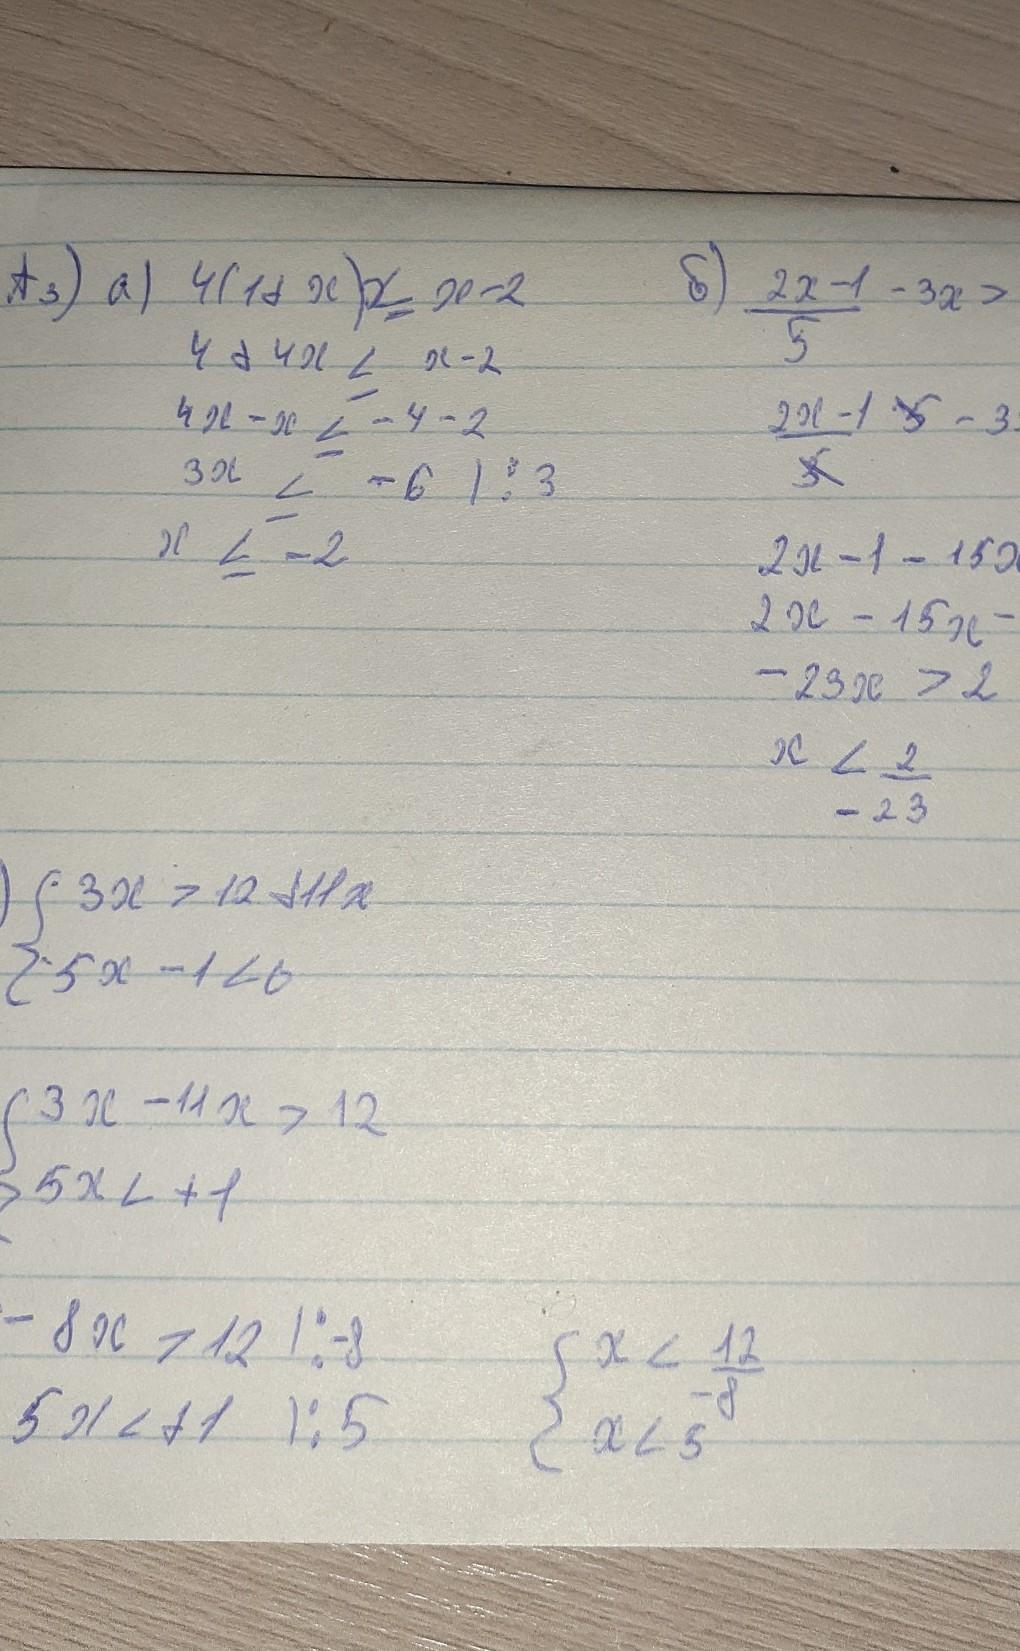 А3) а) 4(1+x) ≤ x-2
4+4x ≤ x-2
4x-x ≤ -4-2
3x ≤ -6 |:3
x ≤ -2
б) (2x-1)/5 - 3x >
(2x-1)/5 · 5 - 3
2x-1-15x
2x-15x-
-23x > 2
x < 2/-23
) { 3x > 12+11x
5x-1<0
{ 3x-11x > 12
5x < +1
-8x > 12 |:-8
5x < +1 |:5
{ x < 12/-8
x < 5